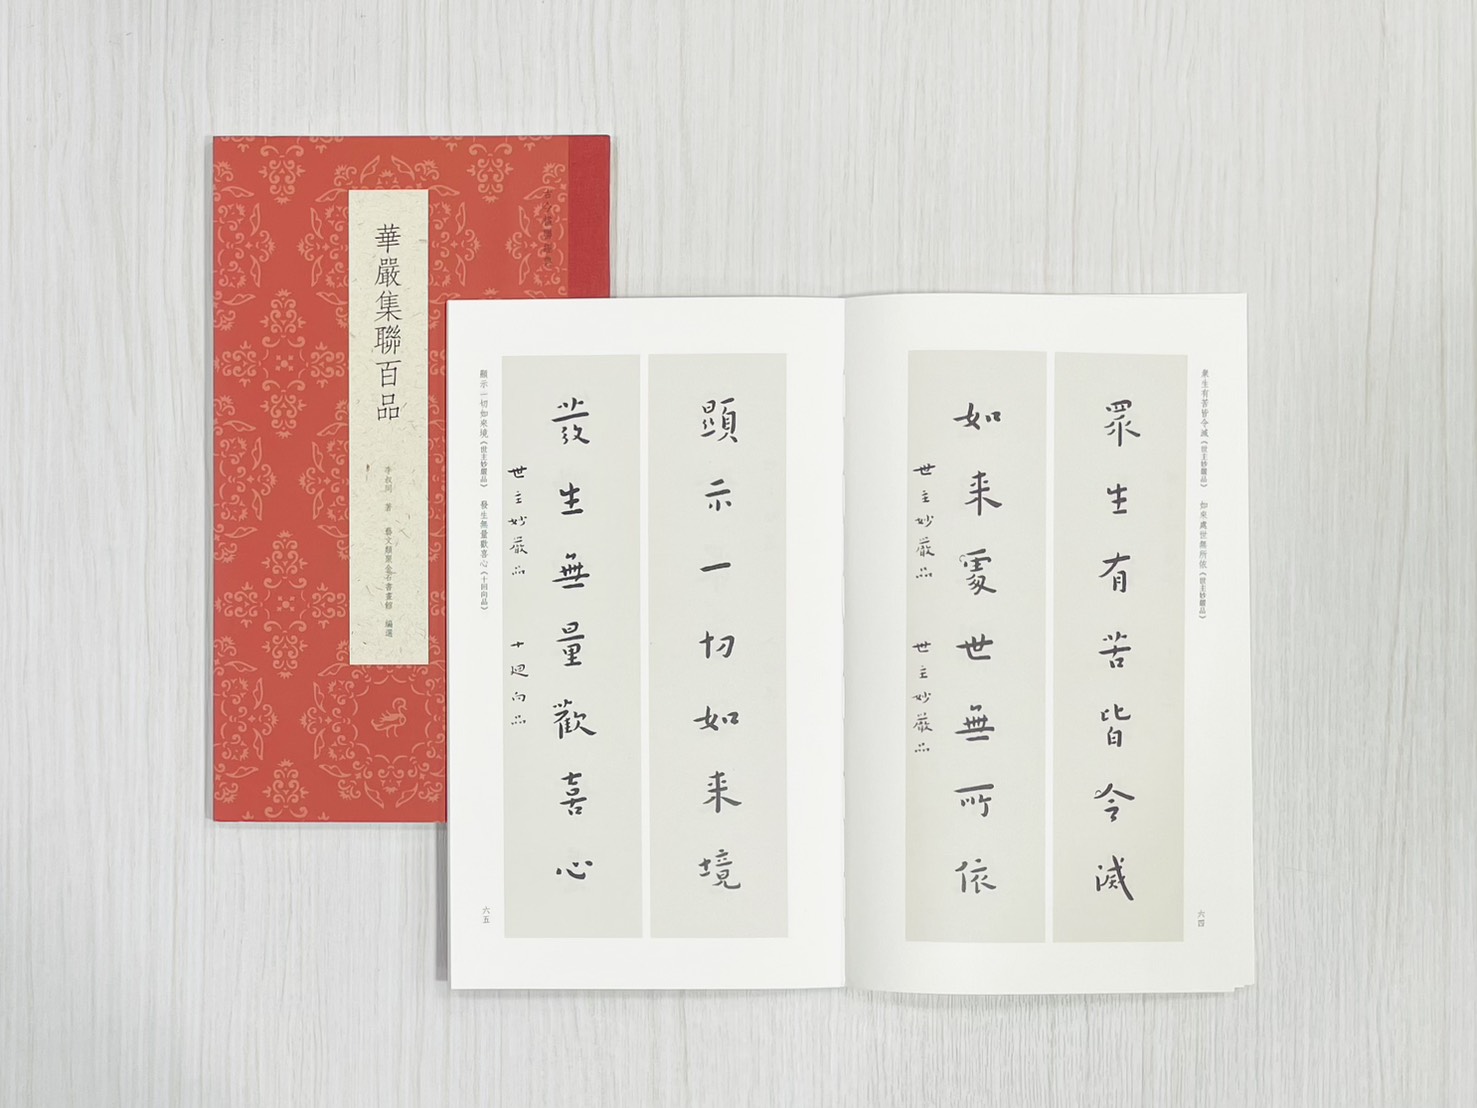 華嚴集聯百品
李叔同 著 藝文類聚金石書畫館 編選
衆生有苦皆令滅《世主妙嚴品》 如來處世無所依《世主妙嚴品》
眾生有苦皆令滅
如来處世無所依
世主妙嚴品 世主妙嚴品
六四
顯示一切如来境
發生無量歡喜心
世主妙嚴品 十迴向品
顯示一切如來境《世主妙嚴品》 發生無量歡喜心《十回向品》
六五